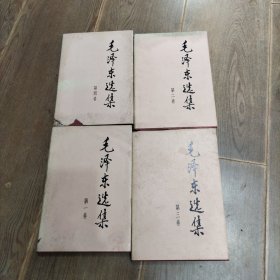 毛泽东选集
第四卷
毛泽东选集
第二卷
毛泽东选集
第一卷
毛泽东选集
第三卷